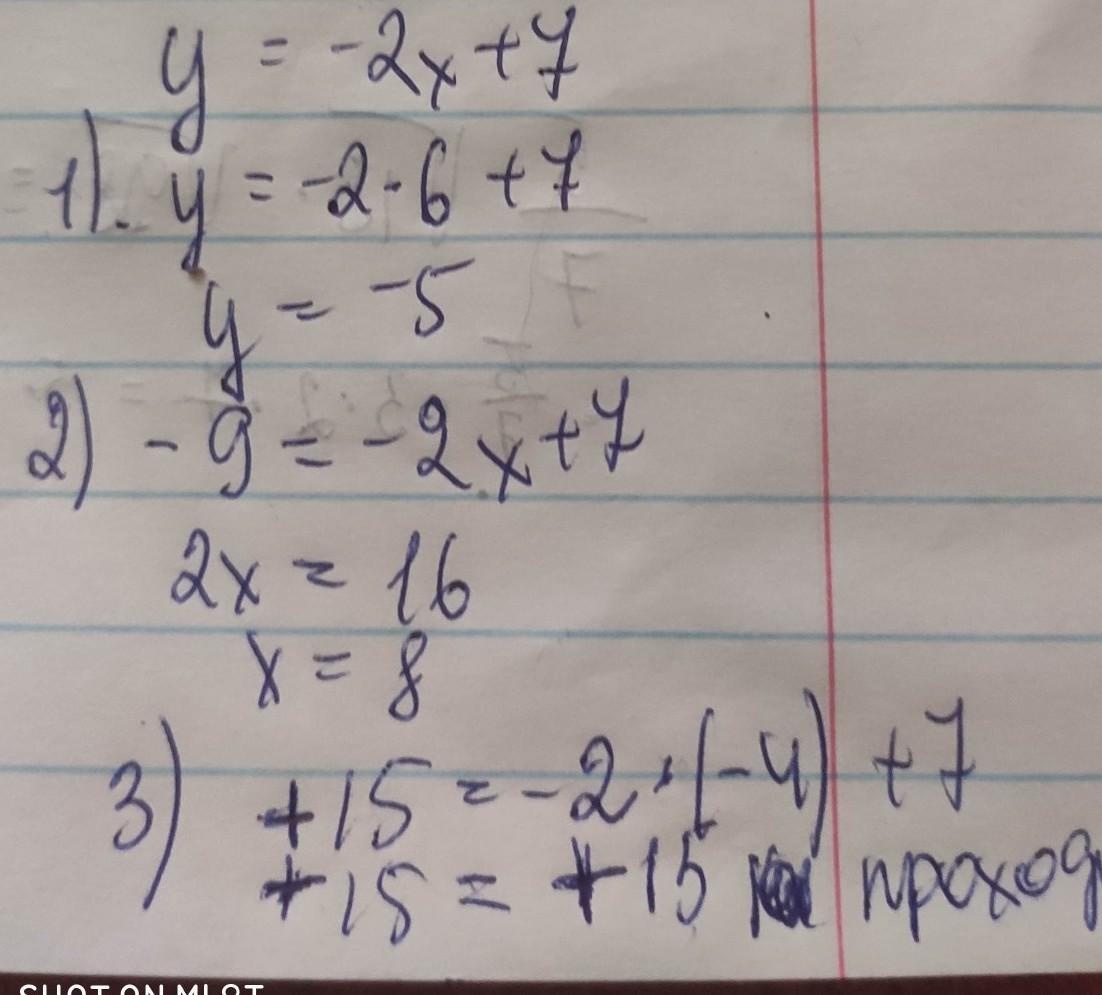 y = -2x+7
1). y = -2·6 +7
y = -5
2) -9 = -2x+7
2x = 16
x = 8
3) +15 = -2·(-4) +7
+15 = +15 проход
SHOT ON MI 9T